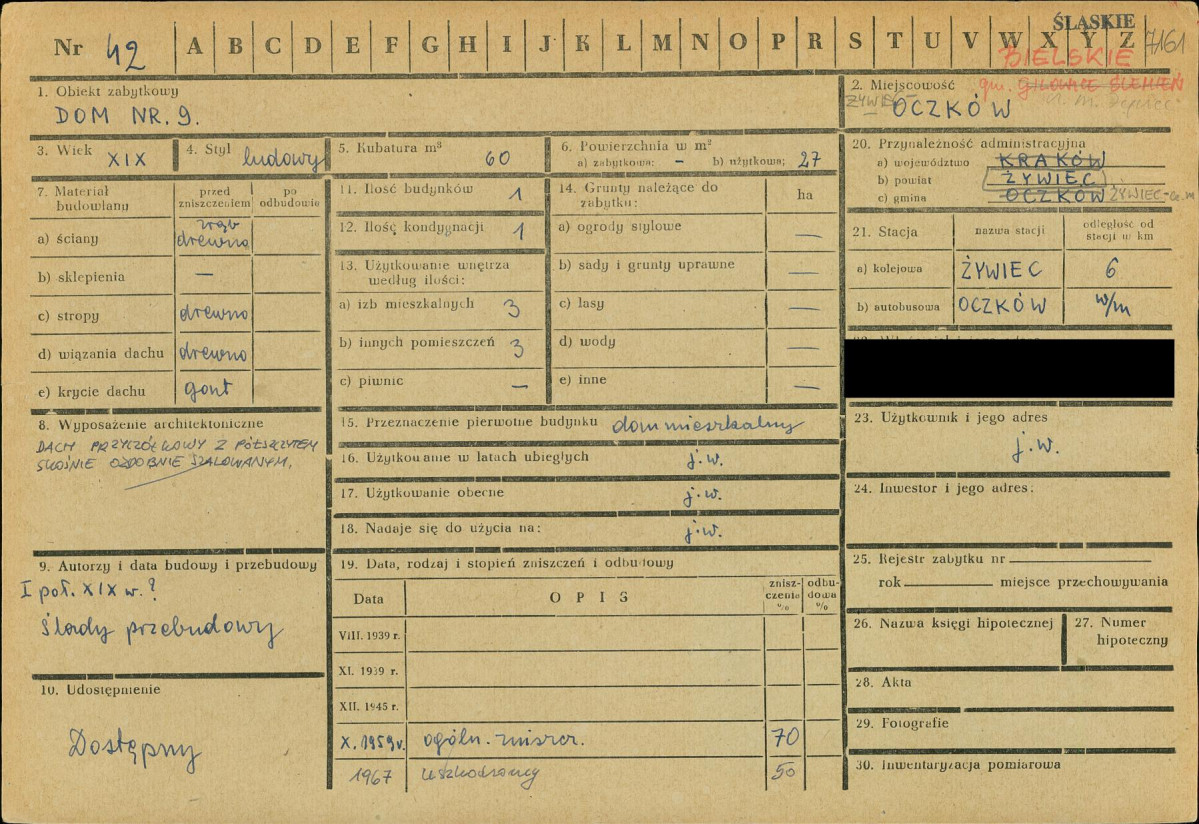 Nr 42 A B C D E F G H I J K L M N O P R S T U V W X Y Z 7161
ŚLĄSKIE
BIELSKIE
gm. GILOWICE ŚLEMIEŃ
1. Obiekt zabytkowy
DOM NR. 9.
2. Miejscowość
OCZKÓW
3. Wiek XIX
4. Styl ludowy
5. Kubatura m³ 60
6. Powierzchnia w m²
a) zabytkowa: – b) użytkowa: 27
7. Materiał budowlany
przed zniszczeniem
po odbudowie
a) ściany zrąb drewno
b) sklepienia —
c) stropy drewno
d) wiązania dachu drewno
e) krycie dachu gont
8. Wyposażenie architektoniczne
DACH PRZYCZÓŁKOWY Z PÓŁSZCZYTEM
SKOŚNIE OZDOBNIE SZALOWANYM.
9. Autorzy i data budowy i przebudowy
I poł. XIX w. ?
Ślady przebudowy
10. Udostępnienie
Dostępny
11. Ilość budynków 1
12. Ilość kondygnacji 1
13. Użytkowanie wnętrza
według ilości:
a) izb mieszkalnych 3
b) innych pomieszczeń 3
c) piwnic –
14. Grunty należące do
zabytku: ha
a) ogrody stylowe —
b) sady i grunty uprawne —
c) lasy —
d) wody —
e) inne —
15. Przeznaczenie pierwotne budynku dom mieszkalny
16. Użytkowanie w latach ubiegłych j.w.
17. Użytkowanie obecne j.w.
18. Nadaje się do użycia na: j.w.
19. Data, rodzaj i stopień zniszczeń i odbudowy
Data OPIS zniszczenia % odbudowa %
VIII. 1939 r.
XI. 1939 r.
XII. 1945 r.
X. 1959 r. ogóln. zniszcz. 70
1967 uszkodzony 50
20. Przynależność administracyjna
a) województwo KRAKÓW
b) powiat ŻYWIEC
c) gmina OCZKÓW ŻYWIEC
21. Stacja
nazwa stacji
odległość od stacji w km
a) kolejowa ŻYWIEC 6
b) autobusowa OCZKÓW w/m
23. Użytkownik i jego adres
j.w.
24. Inwestor i jego adres:
25. Rejestr zabytku nr
rok miejsce przechowywania
26. Nazwa księgi hipotecznej
27. Numer
hipoteczny
28. Akta
29. Fotografie
30. Inwentaryzacja pomiarowa